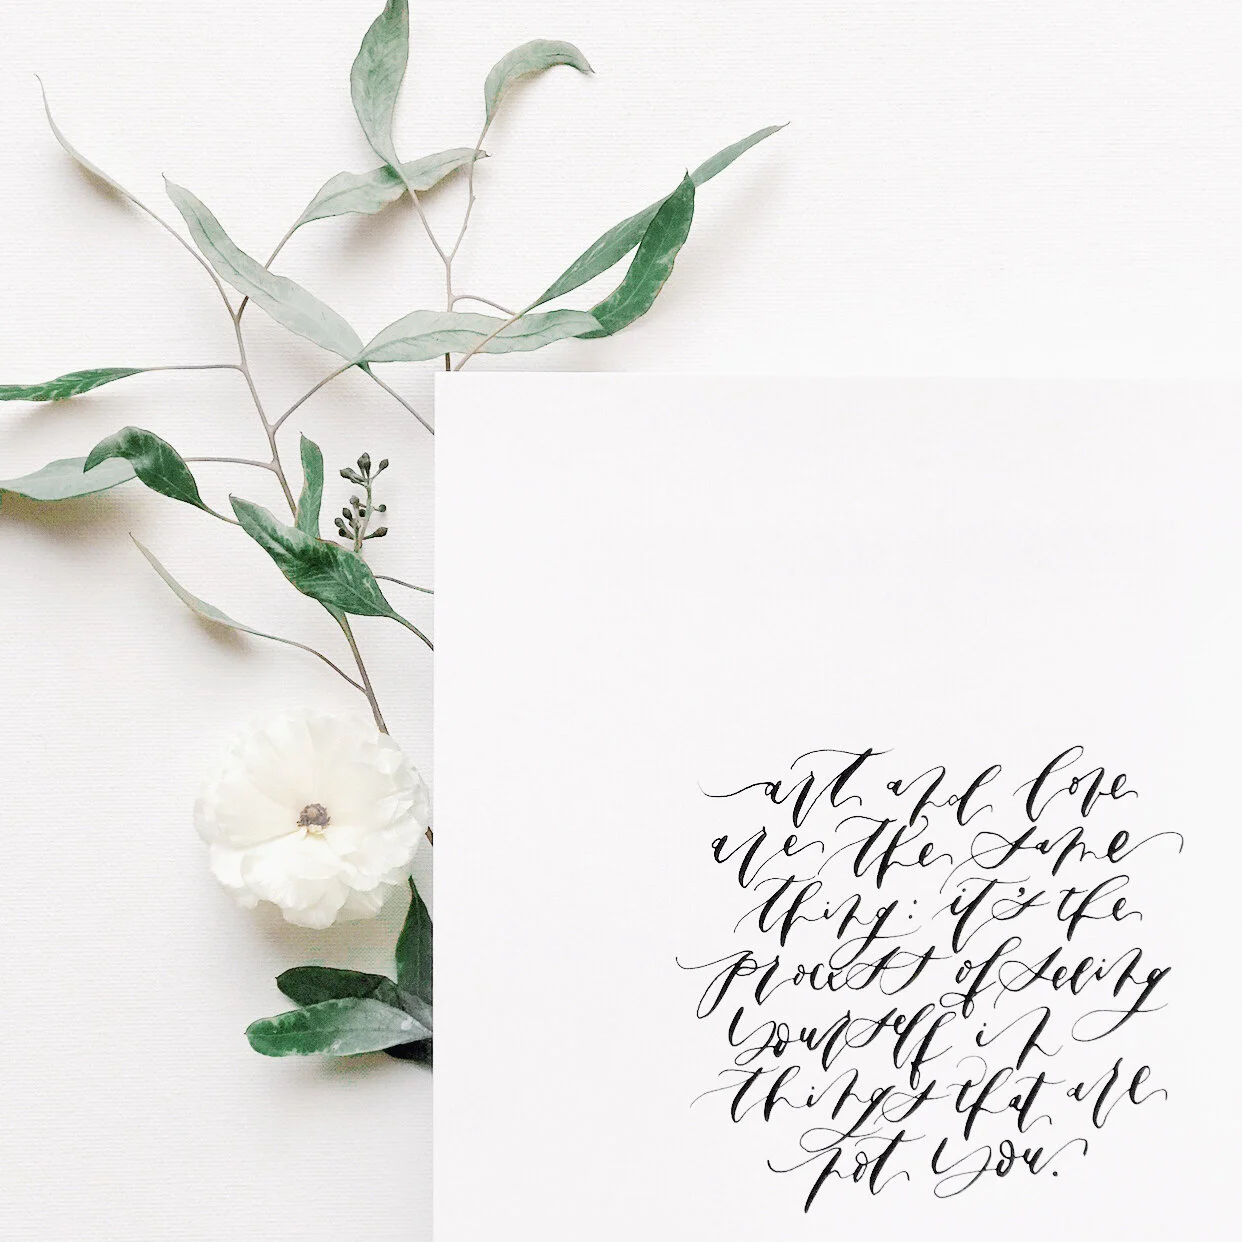 art and love
are the same
thing: it's the
process of seeing
yourself in
things that are
not you.